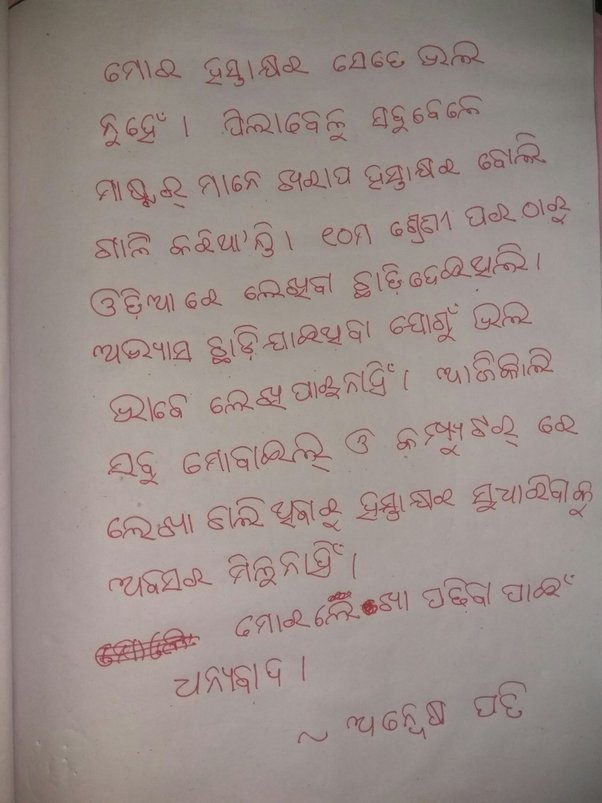 ମୋର ହସ୍ତାକ୍ଷର ସେତେ ଭଲ
ନୁହେଁ । ପିଲାବେଳୁ ସବୁବେଳେ
ମାଷ୍ଟର୍ ମାନେ ଖରାପ ହସ୍ତାକ୍ଷର ବୋଲି
ଗାଳି କରିଥା'ନ୍ତି । ୧୦ମ ଶ୍ରେଣୀ ପର ଠାରୁ
ଓଡ଼ିଆ ରେ ଲେଖିବା ଛାଡ଼ି ଦେଇଥିଲି ।
ଅଭ୍ୟାସ ଛାଡ଼ି ଯାଇଥିବା ଯୋଗୁଁ ଭଲ
ଭାବେ ଲେଖି ପାରୁନାହିଁ । ଆଜିକାଲି
ସବୁ ମୋବାଇଲ୍ ଓ କମ୍ପ୍ୟୁଟର୍ ରେ
ଲେଖା ଚାଲିଥିବାରୁ ହସ୍ତାକ୍ଷର ସୁଧାରିବାକୁ
ଅବସର ମିଳୁନାହିଁ ।
ମୋର ଲେଖା ପଢିବା ପାଇଁ
ଧନ୍ୟବାଦ ।
~ ଅନ୍ୱେଷ ପତି